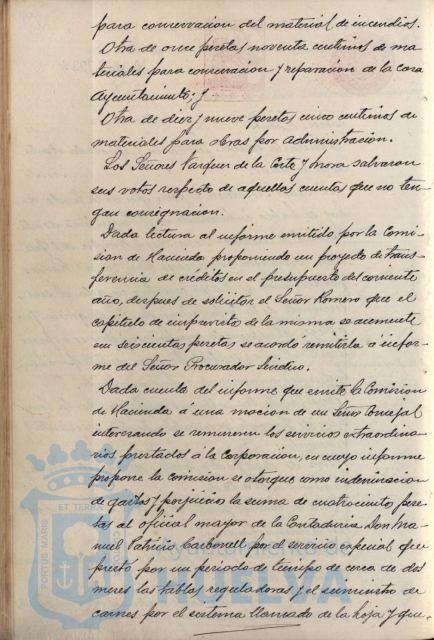 para conservacion del material de incendios.
Otra de once pesetas noventa centimos de ma-
teriales para conservacion y reparacion de la casa
Ayuntamiento; y
Otra de diez y nueve pesetas cinco centimos de
materiales para obras por administracion.
Los Señores Vazquez de la Corte y Mora salvaron
sus votos respecto de aquellas cuentas que no ten-
gan consignacion.
Dada lectura al informe emitido por la Comi-
sion de Hacienda proponiendo un proyecto de trans-
ferencia de créditos en el presupuesto del corriente
año, despues de solicitar el Señor Romero que el
capitulo de imprevistos de la misma se aumente
en seiscientas pesetas se acordó remitirla á infor-
me del Señor Procurador Sindico.
Dada cuenta del informe que emite la Comision
de Hacienda á una mocion de un Señor Concejal
interesando se remuneren los servicios extraordina-
rios prestados á la Corporacion, en cuyo informe
propone la comision se otorgue como indemnizacion
de gastos y perjuicios la suma de cuatrocientas pese-
tas al oficial mayor de la Contaduria Don Ma-
nuel Patricio Carbonell por el servicio especial que
prestó por un periodo de tiempo de cerca de dos
meses las tablas reguladoras y el suministro de
carnes por el sistema llamado de la hoja y que
PORTUS MARIS ET TERRAE
HUELVA